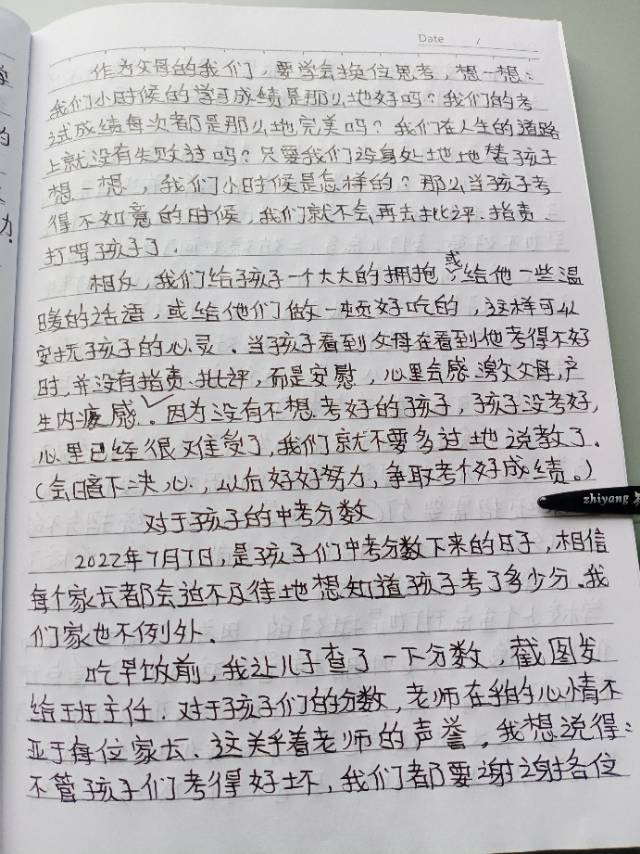 Date /
作为父母的我们，要学会换位思考，想一想：
我们小时候的学习成绩是那么地好吗？我们的考
试成绩每次都是那么地完美吗？我们在人生的道路
上就没有失败过吗？只要我们设身处地地替孩子
想一想，我们小时候是怎样的？那么当孩子考
得不如意的时候，我们就不会再去批评、指责、
打骂孩子了。
相反，我们给孩子一个大大的拥抱，或给他一些温
暖的话语，或给他们做一顿好吃的，这样可以
安抚孩子的心灵。当孩子看到父母在看到他考得不好
时，并没有指责、批评，而是安慰，心里会感激父母，产
生内疚感。因为没有不想考好的孩子，孩子没考好，
心里已经很难受了，我们就不要多过地说教了。
（会暗下决心，以后好好努力，争取考个好成绩。）
zhiyang
对于孩子的中考分数
2022年7月7日，是孩子们中考分数下来的日子，相信
每个家长都会迫不及待地想知道孩子考了多少分。我
们家也不例外。
吃早饭前，我让儿子查了一下分数，截图发
给班主任。对于孩子们的分数，老师在乎的心情不
亚于每位家长、这关乎着老师的声誉。我想说得：
不管孩子们考得好坏，我们都要谢谢各位
的
力？